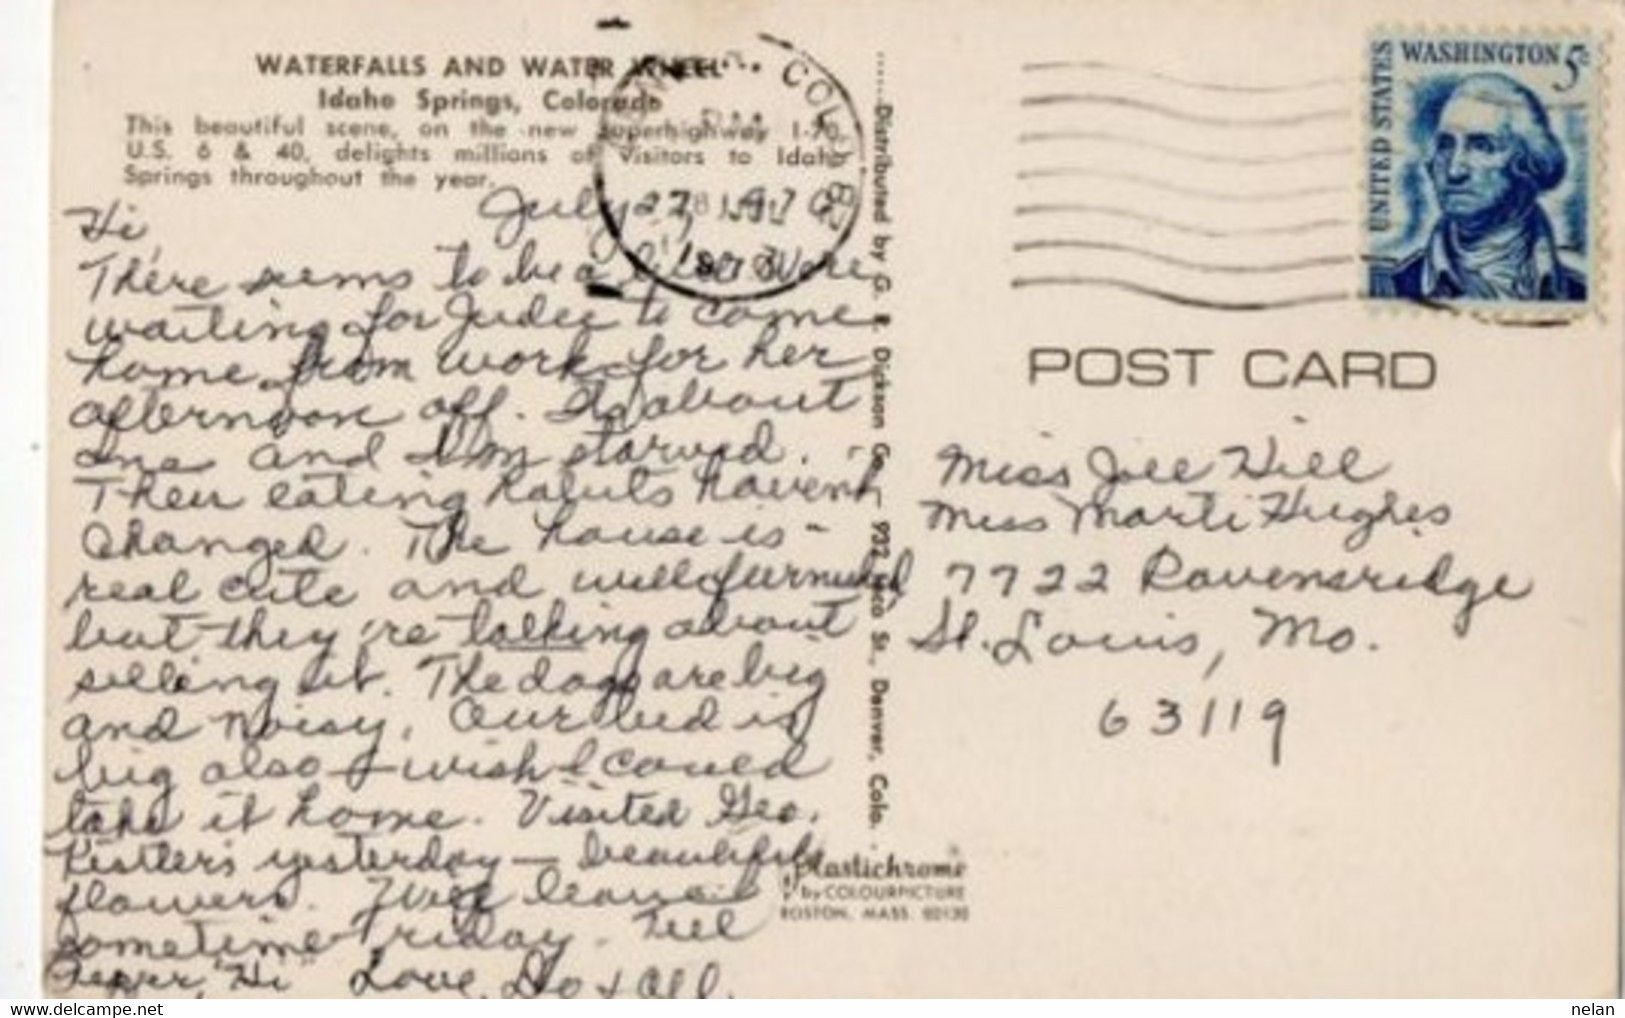 WATERFALLS AND WATER WHEEL
Idaho Springs, Colorado
This beautiful scene, on the new superhighway I-70,
U.S. 6 & 40, delights millions of Visitors to Idaho
Springs throughout the year.
July 27, 1970
Hi,
There seems to be a
waiting for Judee to come
home from work for her
afternoon off. Its about
One and I'm starved.
Their eating habits haven't
changed. The house is -
real cute and well furnished
but they're talking about
selling it. The dogs are big
and noisy. Our bed is
big also I wish I could
take it home. Visited Geo.
Kistler's yesterday — beautiful
flowers. Will leave
sometime Friday. Tell
Pepper, "Hi" Love, Do + All.
.....Distributed by G. R. Dickson Co., 932 St., Denver, Colo.
Plastichrome
by COLOURPICTURE
BOSTON, MASS. 02130
COLO. 802
UNITED STATES
WASHINGTON 5c
POST CARD
Miss Jill Hill
Miss Marti Hughes
7722 Ravensridge
St. Louis, Mo.
63119
nelan